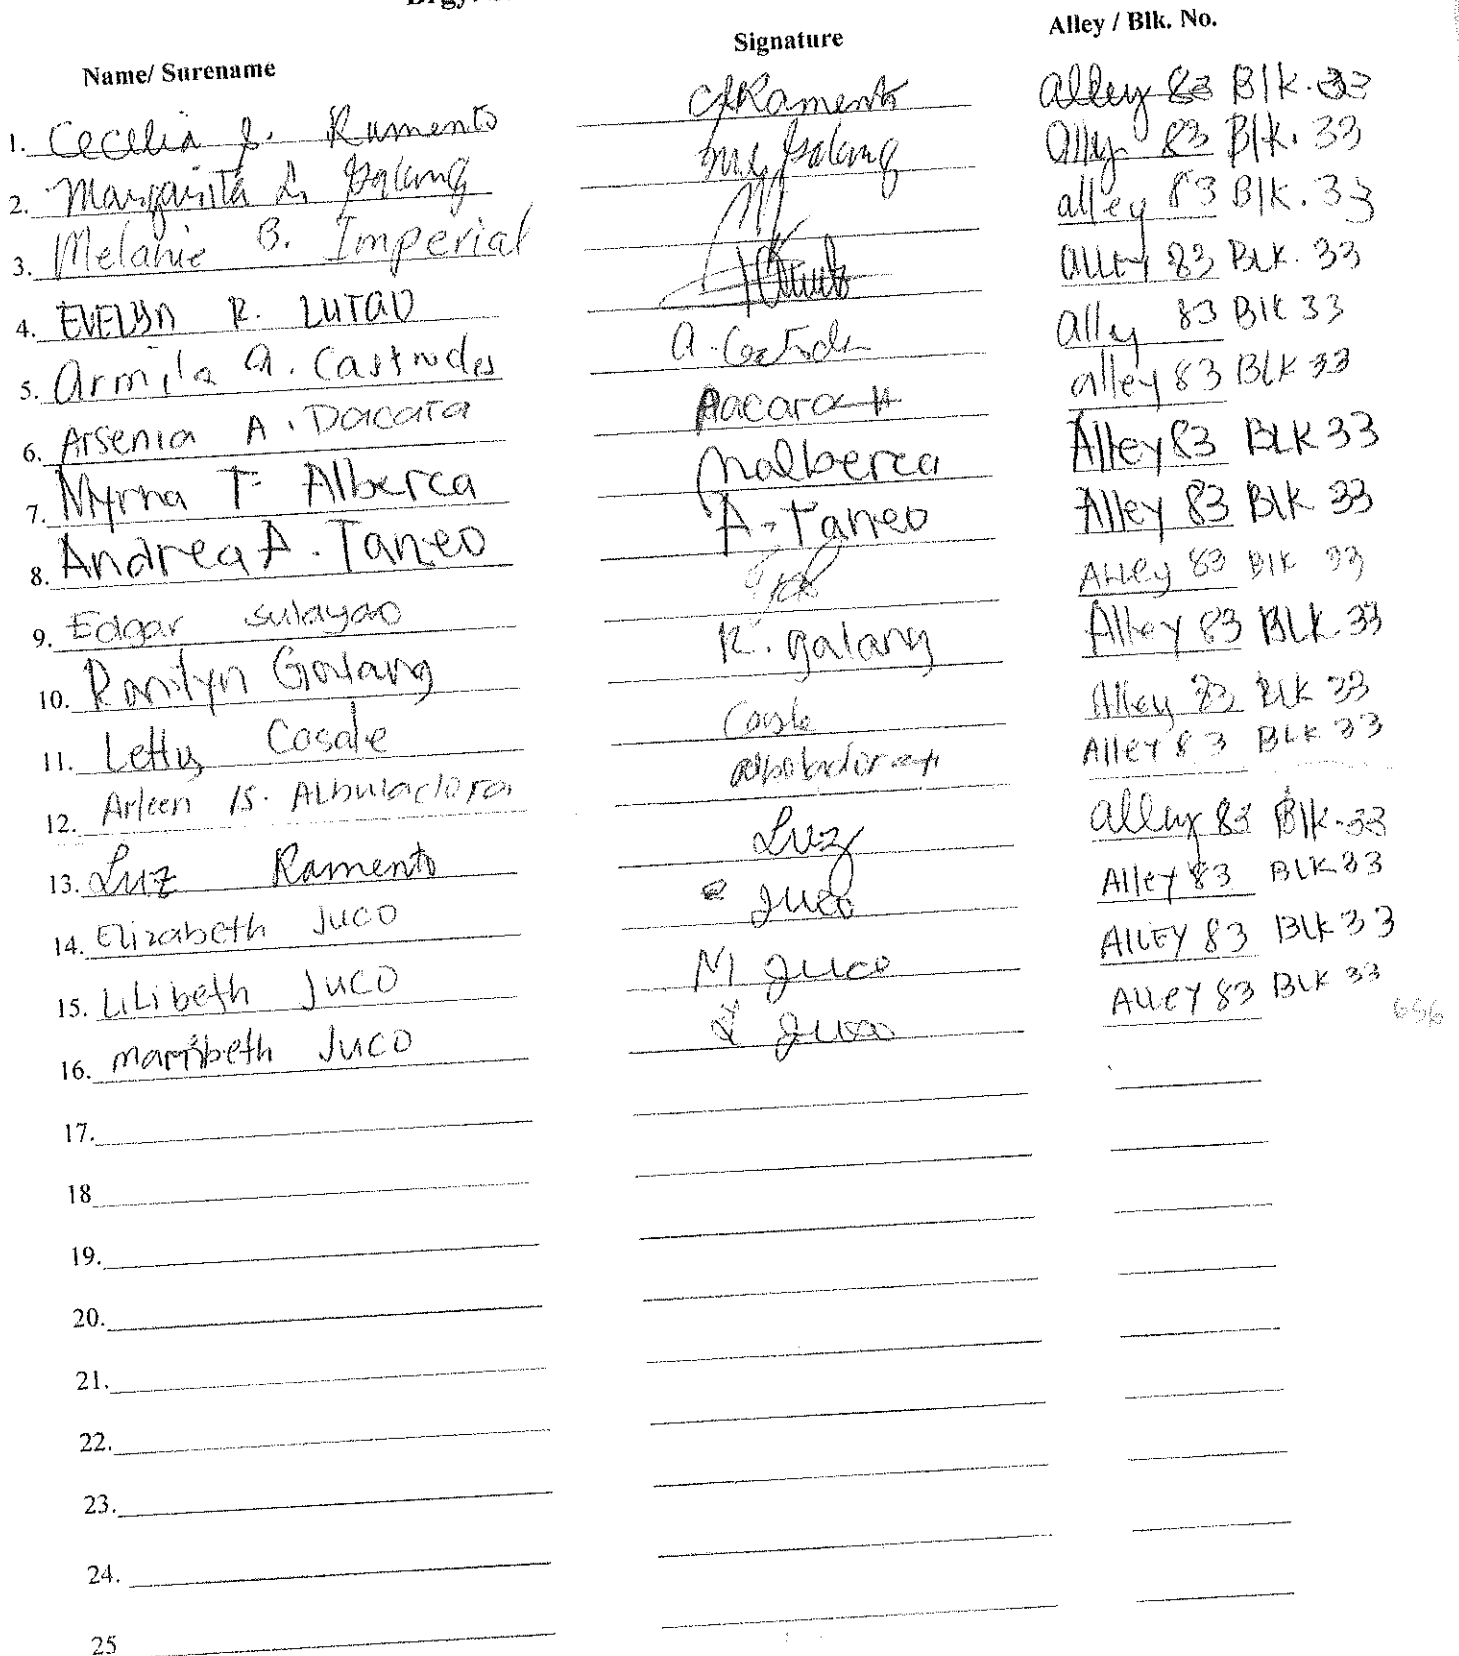 Name/ Surename Signature Alley / Blk. No.
1. Cecelia J. Ramento CJRamento alley 83 Blk. 33
2. Margarita L. Galang ML Galang Ally 83 Blk. 33
3. Melanie B. Imperial alley 83 Blk. 33
4. EVELYN R. LUTAO Alley 83 BLK. 33
5. Armila A. Castrodes Ally 83 Blk 33
6. Arsenia A. Dacara Aacara alley 83 BLK 33
7. Myrna T. Alberca Malberca Alley 83 BLK 33
8. Andrea A. Taneo A. Taneo Alley 83 Blk 33
9. Edgar Sulayao Alley 83 Blk 33
10. Ranilyn Galang R. galang Alley 83 BLK 33
11. Letty Casale Casale Alley 83 BLK 33
12. Arleen B. Albuladora Alley 83 BLK 33
13. Luz Ramento Luz alley 83 Blk. 33
14. Elizabeth Juco e Juco Alley 83 BLK 33
15. LiLibeth JUCO M Juco AllEY 83 BLK 33
16. maribeth JUCO L Juco Alley 83 BLK 33
656
17.
18
19.
20.
21.
22.
23.
24.
25